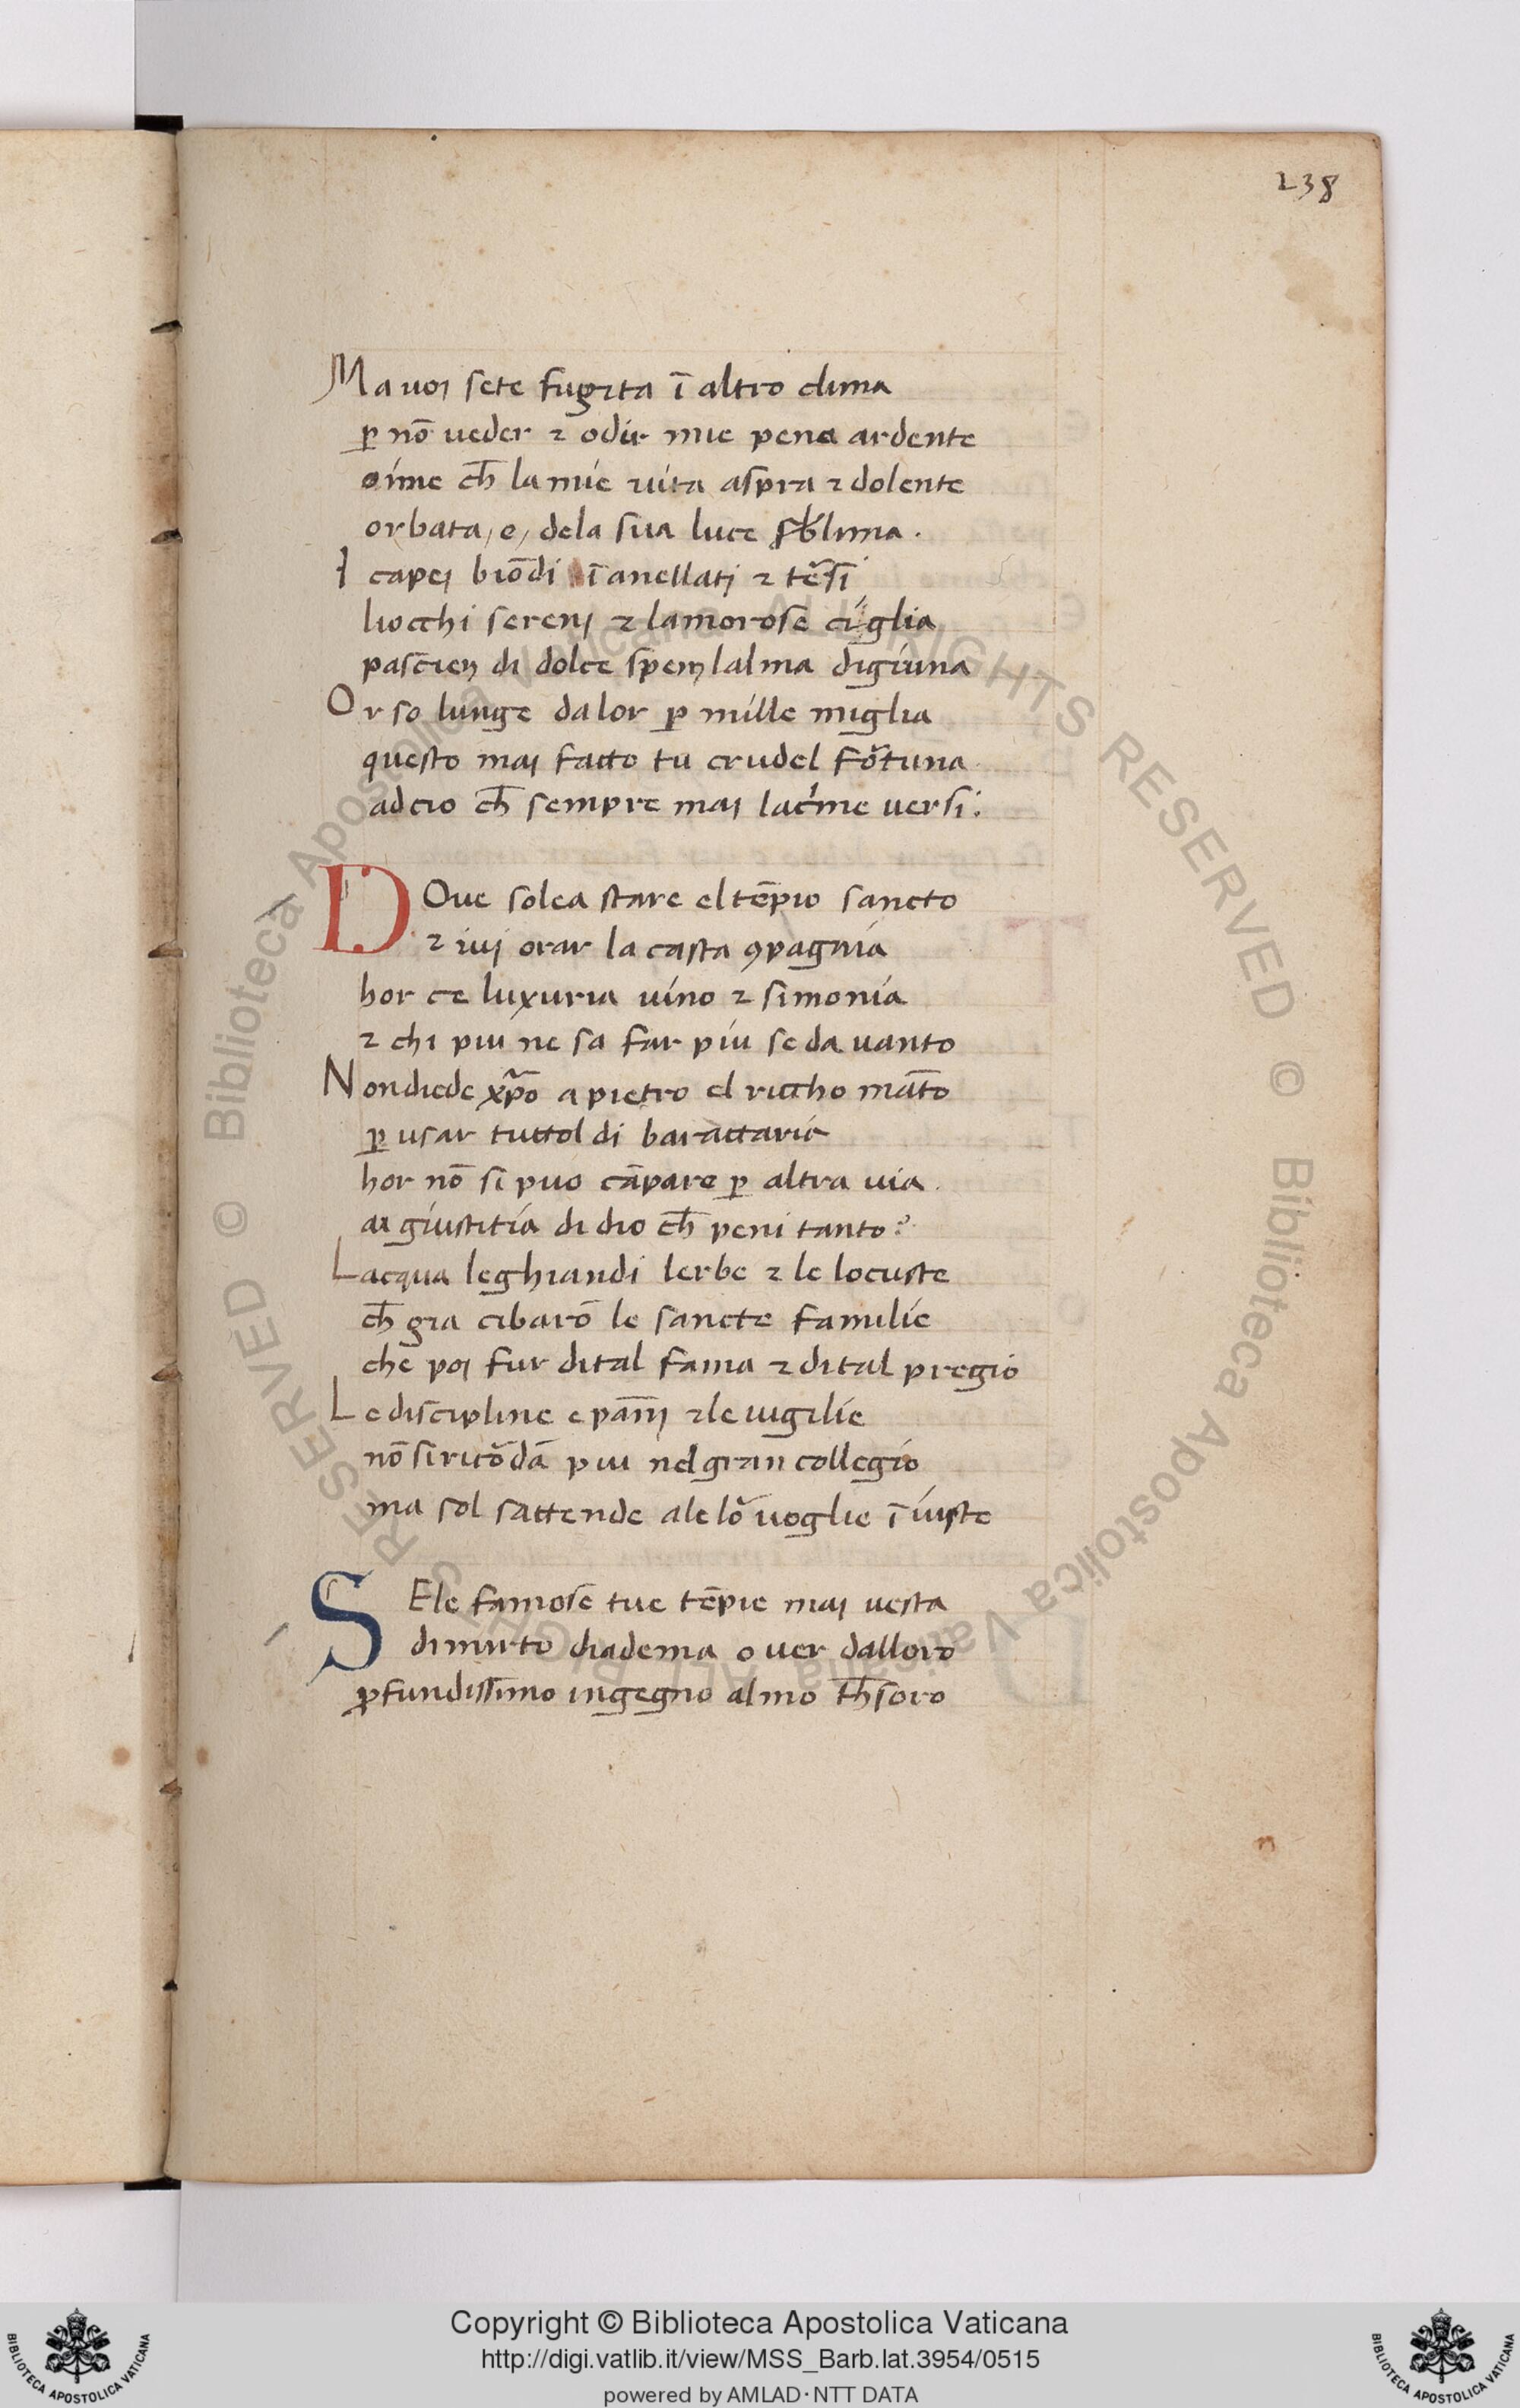 238
Ma uoi sete fugita ī altro clima
ꝑ nō ueder ⁊ odir mie pene ardente
oime ch̄ la mie uita aspra ⁊ dolente
orbata, e, dela sua luce sƀlima.
I capei biōdi ī anellati ⁊ te᷒si
liocchi sereni ⁊ lamorose ciglia
pascien di dolce spem lalma digiuna
Or so lunge dalor ꝑ mille miglia
questo mai facto tu crudel fortuna
adcio ch̄ sempre mai lacrime uersi.
DOue solea stare el tēpio sancto
⁊ iui orar la casta ꝯpagnia
hor ce luxuria uino ⁊ simonia
⁊ chi piu ne sa far piu se da uanto
Non diede xp̄o a pietro el riccho māto
ꝑ usar tuttol di barattarie
hor nō si puo cāpare ꝑ altra uia.
ai giustitia di dio ch̄ peni tanto?
Lacqua leghiandi lerbe ⁊ le locuste
ch̄ gia cibarō le sancte familie
che poi fur dital fama ⁊ dital pregio
Le discipline e pāni ⁊ le uigilie
nō si ricordā piu nel gran collegio
ma sol sattende ale lor uoglie ī iuste
SEle famose tue tēpie mai uesta
di mirto diadema o uer dalloro
ꝓfundissimo ingegno almo th̄soro
© Biblioteca Apostolica Vaticana ALL RIGHTS RESERVED © Biblioteca Apostolica Vaticana ALL RIGHTS RESERVED
Copyright © Biblioteca Apostolica Vaticana
http://digi.vatlib.it/view/MSS_Barb.lat.3954/0515
powered by AMLAD·NTT DATA
BIBLIOTECA APOSTOLICA VATICANA
BIBLIOTECA APOSTOLICA VATICANA